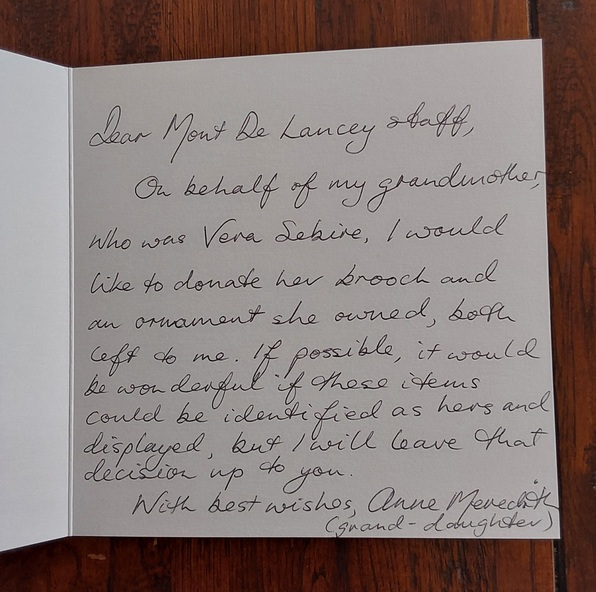 Dear Mont De Lancey staff,
On behalf of my grandmother,
who was Vera Sebire, I would
like to donate her brooch and
an ornament she owned, both
left to me. If possible, it would
be wonderful if these items
could be identified as hers and
displayed, but I will leave that
decision up to you.
With best wishes, Anne Meredith
(grand-daughter)